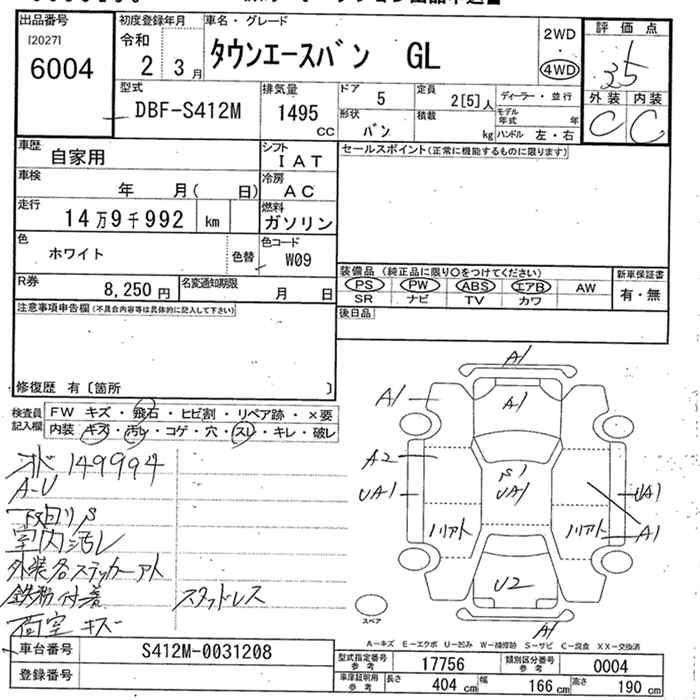 出品番号
[2027]
6004
初度登録年月
令和
2 3月
車名・グレード
タウンエースバン GL
2WD
・
4WD
評価点
3.5
外装 内装
C C
型式
DBF-S412M
排気量
1495
CC
ドア
5
定員
2[5]人
ディーラー・並行
形状
バン
積載
kg
モデル年式 年
ハンドル 左・右
車歴
自家用
シフト
IAT
セールスポイント(正常に機能するものに限ります)
車検
年 月( 日)
冷房
AC
走行
14万9千992 km
燃料
ガソリン
色
ホワイト
色替
色コード
W09
装備品 (純正品に限り○をつけてください)
新車保証書
PS PW ABS エアB AW
SR ナビ TV カワ
有・無
R券
8,250円
名変通知期限
月 日
後日品
注意事項申告欄(不具合内容等は具体的に記入して下さい)
修復歴 有〔箇所 〕
検査員記入欄
FW キズ・飛石・ヒビ割・リペア跡・×要
内装・キズ・汚レ・コゲ・穴・スレ・キレ・破レ
オド 149994
A-U
下廻りS
室内汚レ
外装各ステッカーアト
鉄粉付着 スタッドレス
荷室キズ
A1
A1
A1
A2
UA1
S1
UA1
UA1
ノリアト
ノリアト
A1
U2
A1
スペア
A-キズ E-エクボ U-凹み W-補修跡 S-サビ C-腐食 XX-交換済
車台番号
S412M-0031208
登録番号
型式指定番号 参考
17756
類別区分番号 参考
0004
車庫証明用 参考
長さ 404 cm
幅 166 cm
高さ 190 cm